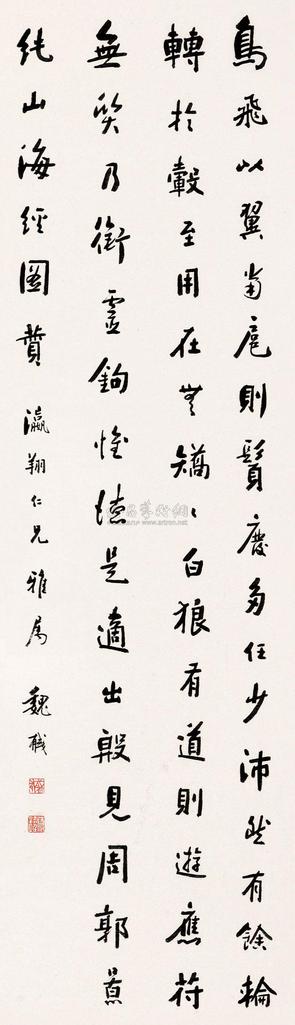 鳥飛以翼當扈則鬚廢多任少沛然有餘輪
轉於轂至用在無矯〻白狼有道則遊應符
無質乃銜靈鉤惟德是適出殷見周郭景
純山海經圖贊 瀛翔仁兄雅屬 魏戫